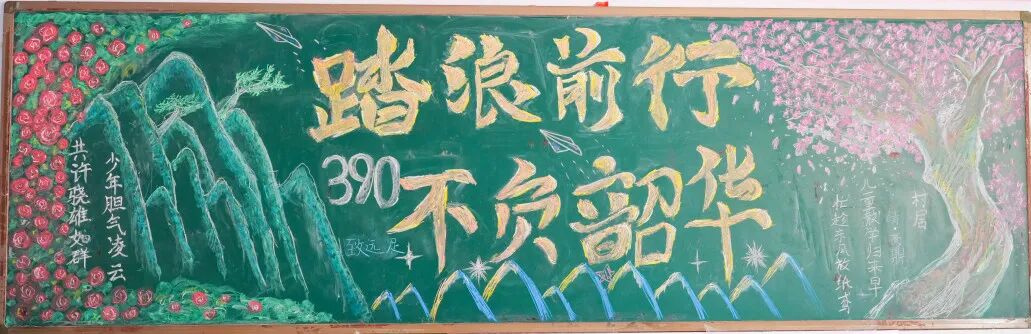 少年胆气凌云
共许骁雄如群
踏浪前行
390
不负韶华
致远
村居
儿童散学归来早
忙趁东风放纸鸢